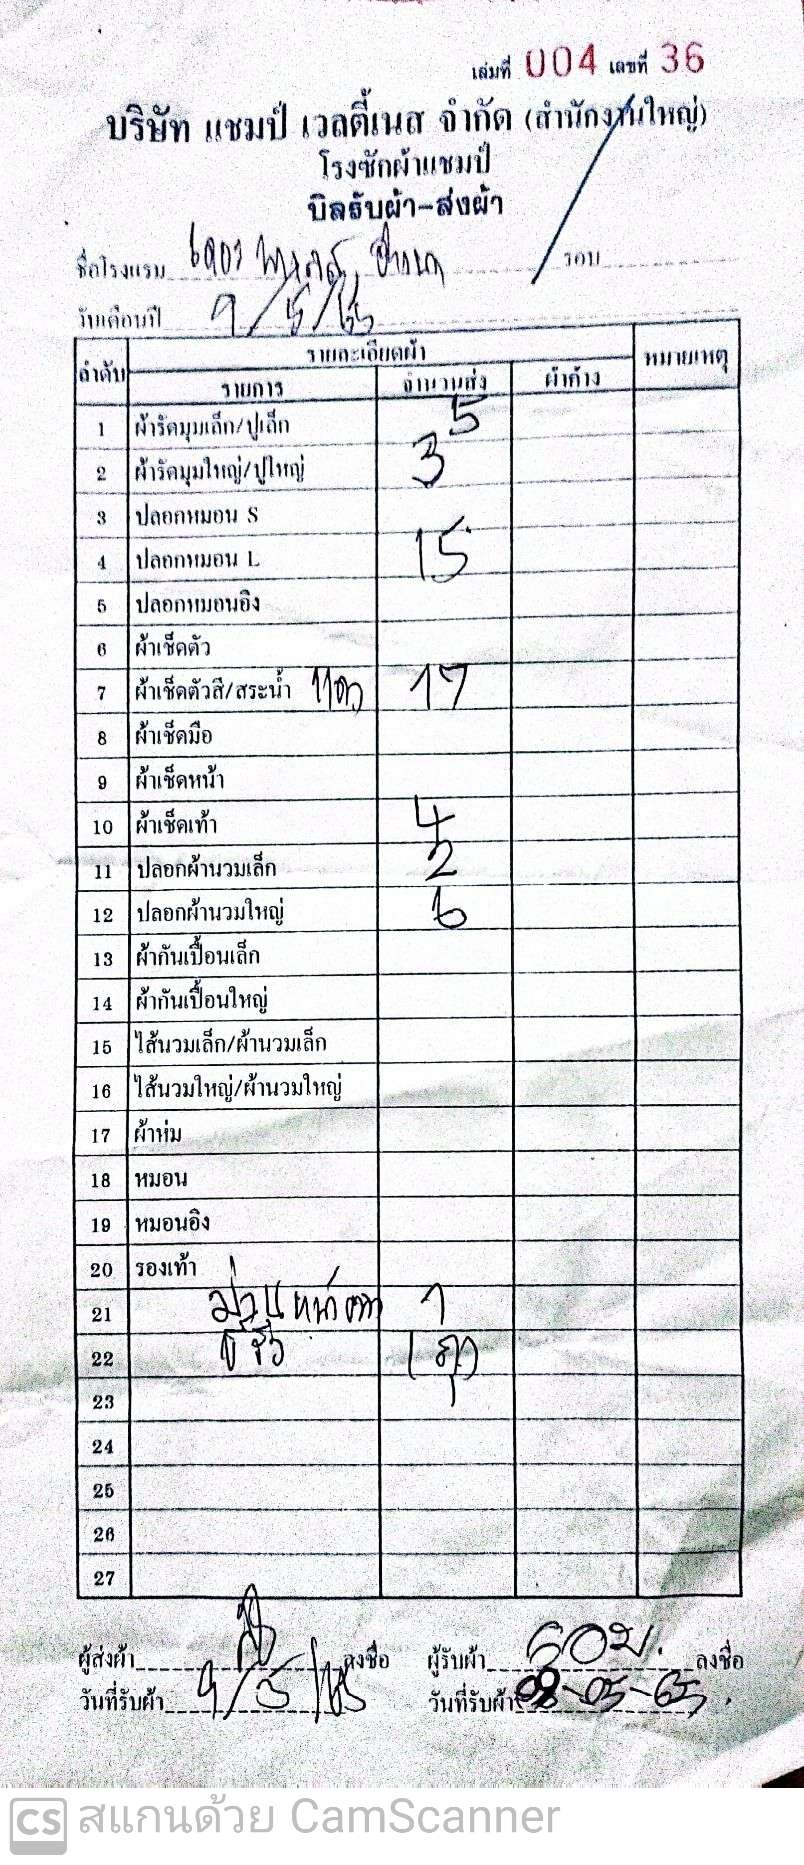 เล่มที่ 004 เลขที่ 36
บริษัท แชมป์ เวลตี้เนส จำกัด (สำนักงานใหญ่)
โรงซักผ้าแชมป์
บิลรับผ้า-ส่งผ้า
ชื่อโรงแรม รอบ
วันเดือนปี 9/5/65
ลำดับ รายละเอียดผ้า หมายเหตุ
รายการ จำนวนส่ง ผ้าค้าง
1 ผ้ารัดมุมเล็ก/ปูเล็ก 5
2 ผ้ารัดมุมใหญ่/ปูใหญ่ 3
3 ปลอกหมอน S
4 ปลอกหมอน L 15
5 ปลอกหมอนอิง
6 ผ้าเช็ดตัว
7 ผ้าเช็ดตัวสี/สระน้ำ 17
8 ผ้าเช็ดมือ
9 ผ้าเช็ดหน้า
10 ผ้าเช็ดเท้า 4
11 ปลอกผ้านวมเล็ก 2
12 ปลอกผ้านวมใหญ่ 6
13 ผ้ากันเปื้อนเล็ก
14 ผ้ากันเปื้อนใหญ่
15 ไส้นวมเล็ก/ผ้านวมเล็ก
16 ไส้นวมใหญ่/ผ้านวมใหญ่
17 ผ้าห่ม
18 หมอน
19 หมอนอิง
20 รองเท้า
21 ม่านหน้าต่าง 1
22
23
24
25
26
27
ผู้ส่งผ้า ลงชื่อ ผู้รับผ้า ลงชื่อ
วันที่รับผ้า 9/5/65 วันที่รับผ้า 09-05-65
CS สแกนด้วย CamScanner